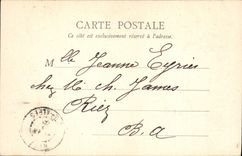 CARTE POSTALE
Ce côté est exclusivement réservé à l'adresse.
M lle Jeanne Eyries
chez M. Ch. James
Riez
B. A